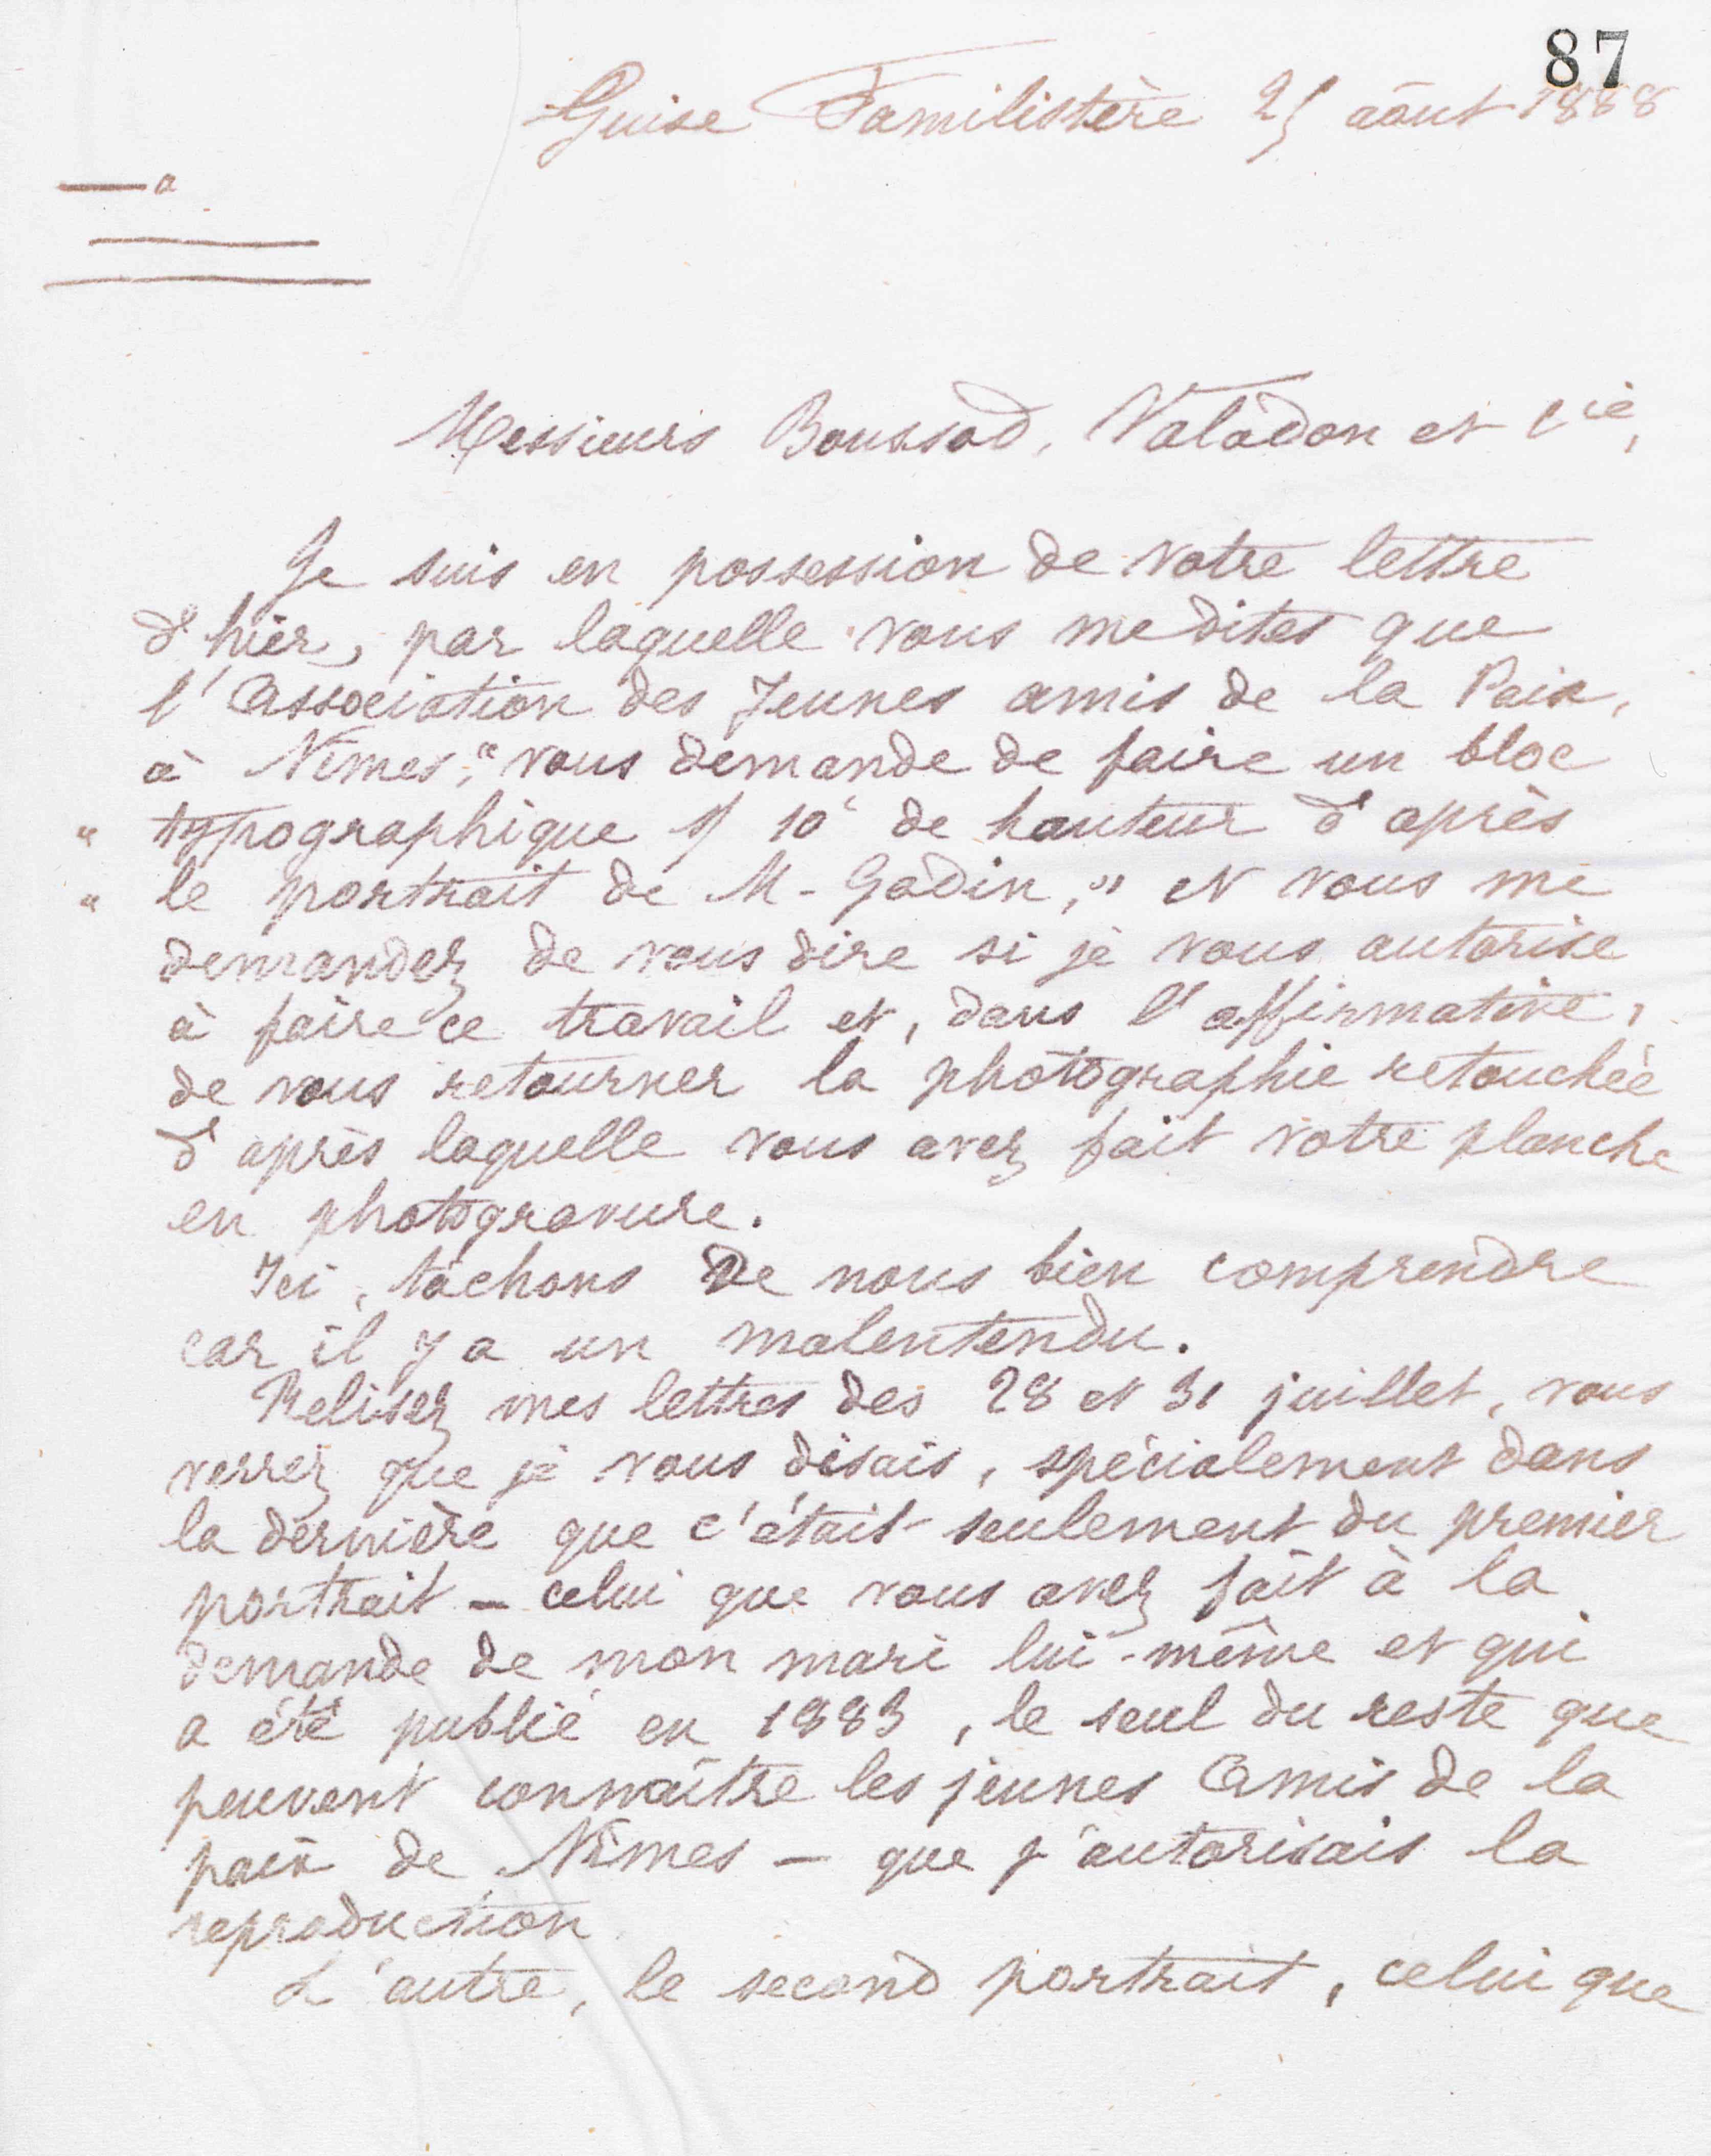 87
Guise Familistère 25 août 1888
a
Messieurs Boussod, Valadon et Cie,
Je suis en possession de votre lettre
d'hier, par laquelle vous me dites que
l'Association des Jeunes amis de la Paix,
à Nîmes, "vous demande de faire un bloc
" typographique s/ 10 de hauteur d'après
" le portrait de M. Godin," et vous me
demandez de vous dire si je vous autorise
à faire ce travail et, dans l'affirmative,
de vous retourner la photographie retouchée
d'après laquelle vous avez fait votre planche
en photogravure.
Ici, tâchons de nous bien comprendre
car il y a un malentendu.
Relisez mes lettres des 28 et 31 juillet, vous
verrez que je vous disais, spécialement dans
la dernière que c'était seulement du premier
portrait - celui que vous avez fait à la
demande de mon mari lui-même et qui
a été publié en 1883, le seul du reste que
peuvent connaître les jeunes Amis de la
paix de Nîmes - que j'autorisais la
reproduction.
L'autre, le second portrait, celui que